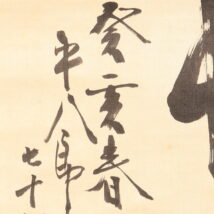 癸亥春
平八郎
七十